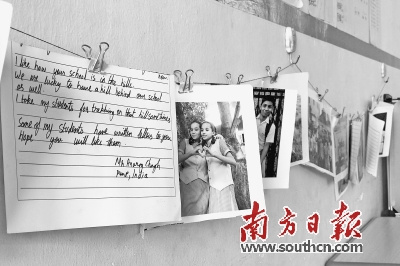 I like how your school is in the hills.
We are lucky to have a hill behind our school
as well.
I take my students for trekking on that hill sometimes.
Some of my students have written letters to you.
Hope you will like them.
Mr. Anurag
Pune, India
南方日报
www.southcn.com